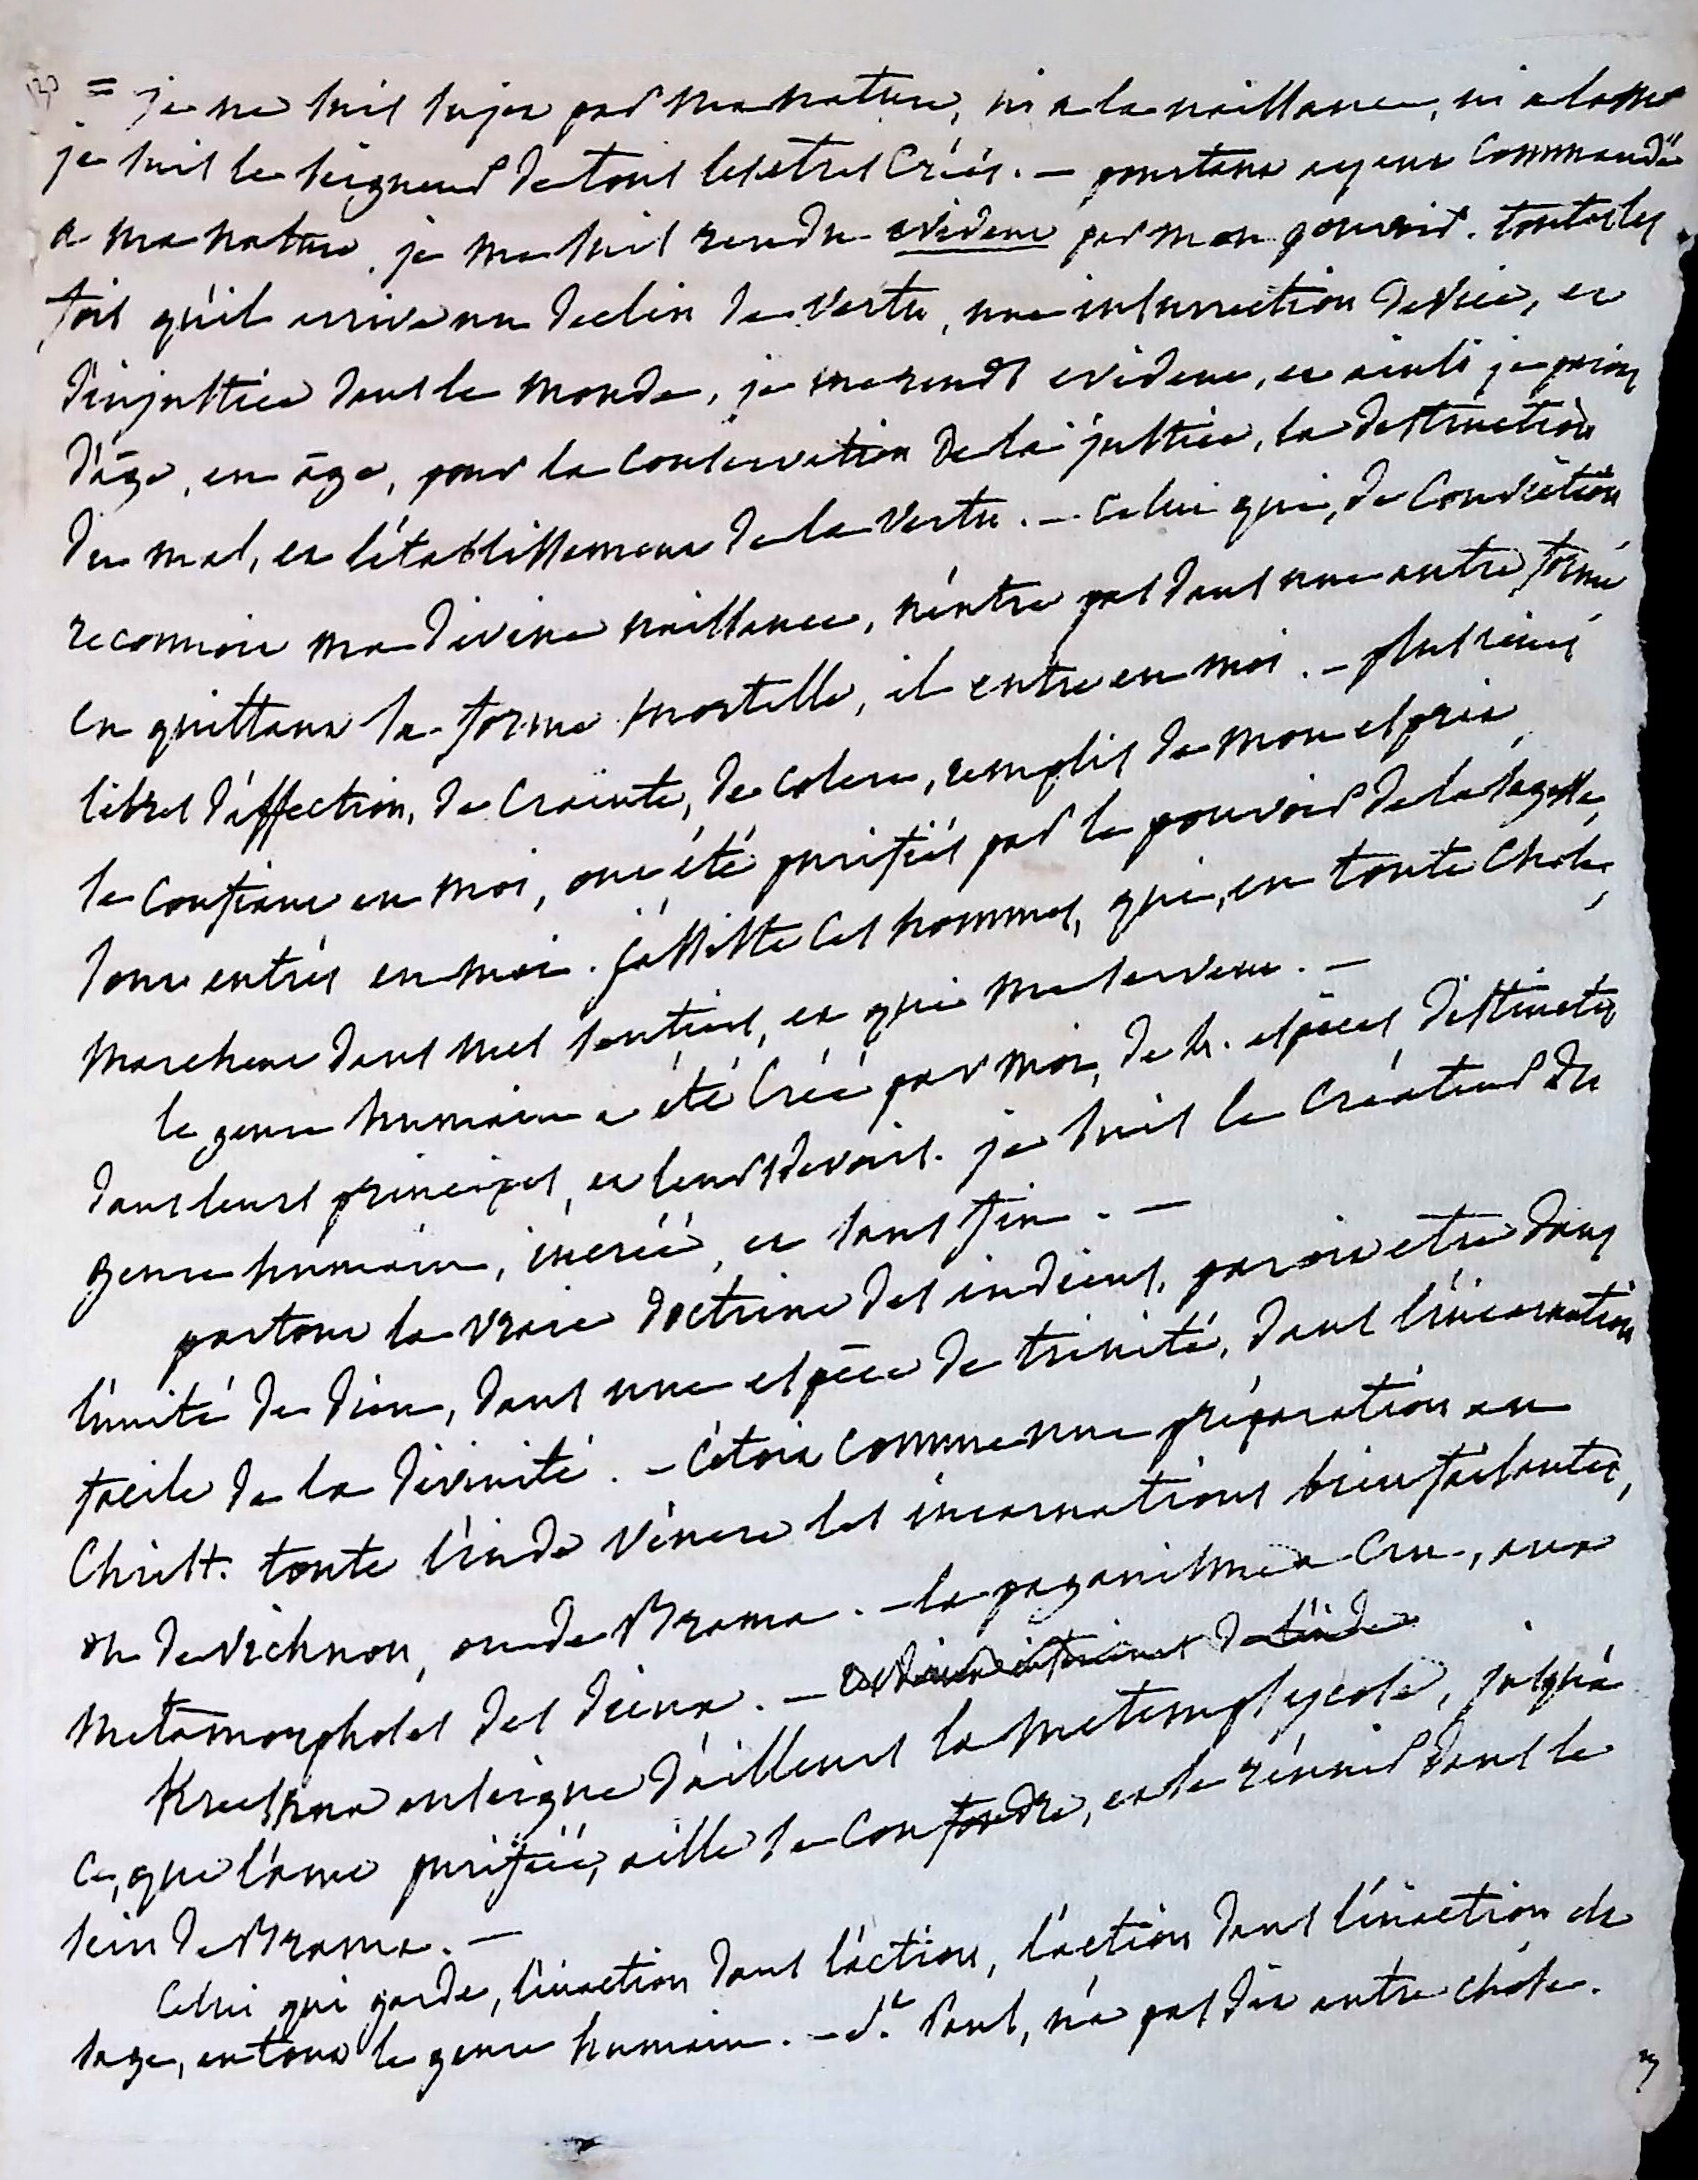 = je ne suis sujet par ma nature, ni a la naissance, ni a la mort
je suis le seigneur de tous les etres créés. — pourtant ayant commandé
a ma nature, je me suis rendu evident par mon pouvoir. toutes les
fois qu'il arrive un declin de vertu, une insurrection de vice, et
d'injustice dans le monde, je me rends evident, et ainsi je parois
d'âge, en âge, pour la conservation de la justice, la destruction
du mal, et l'établissement de la vertu. — celui qui, de conviction
reconnoit ma divine naissance, n'entre pas dans une autre forme
en quittant sa forme mortelle, il entre en moi. — plusieurs
libres d'affection, de crainte, de colere, remplis de mon esprit
se confiant en moi, ont été purifiés par le pouvoir de la sagesse,
sont entrés en moi. j'assiste ces hommes, qui, en toute chose,
marchent dans mes sentiers, et qui me servent. —
le genre humain a été créé par moi, de 4. espèces distinctes
dans leurs principes, et leurs devoirs. je suis le créateur du
genre humain, incréé, et sans fin. —
partout la vraie doctrine des indiens, paroit etre dans
l'unité de dieu, dans une espèce de trinité, dans l'incarnation
facile de la divinité. — c'étoit comme une préparation au
Christ. toute l'inde vénere les incarnations bienfaisantes,
ou de Vichnou, ou de Brama. — le paganisme a cru, aux
metamorphoses des dieux. —
Kreeshna enseigne d'ailleurs la metempsycose, jusqu'à
ce, que l'ame purifiée, aille se confondre, et se réunir dans le
sein de Brama. —
Celui qui garde, l'inaction dans l'action, l'action dans l'inaction est
sage, entout le genre humain. — St. Paul, n'a pas dit autre chose.